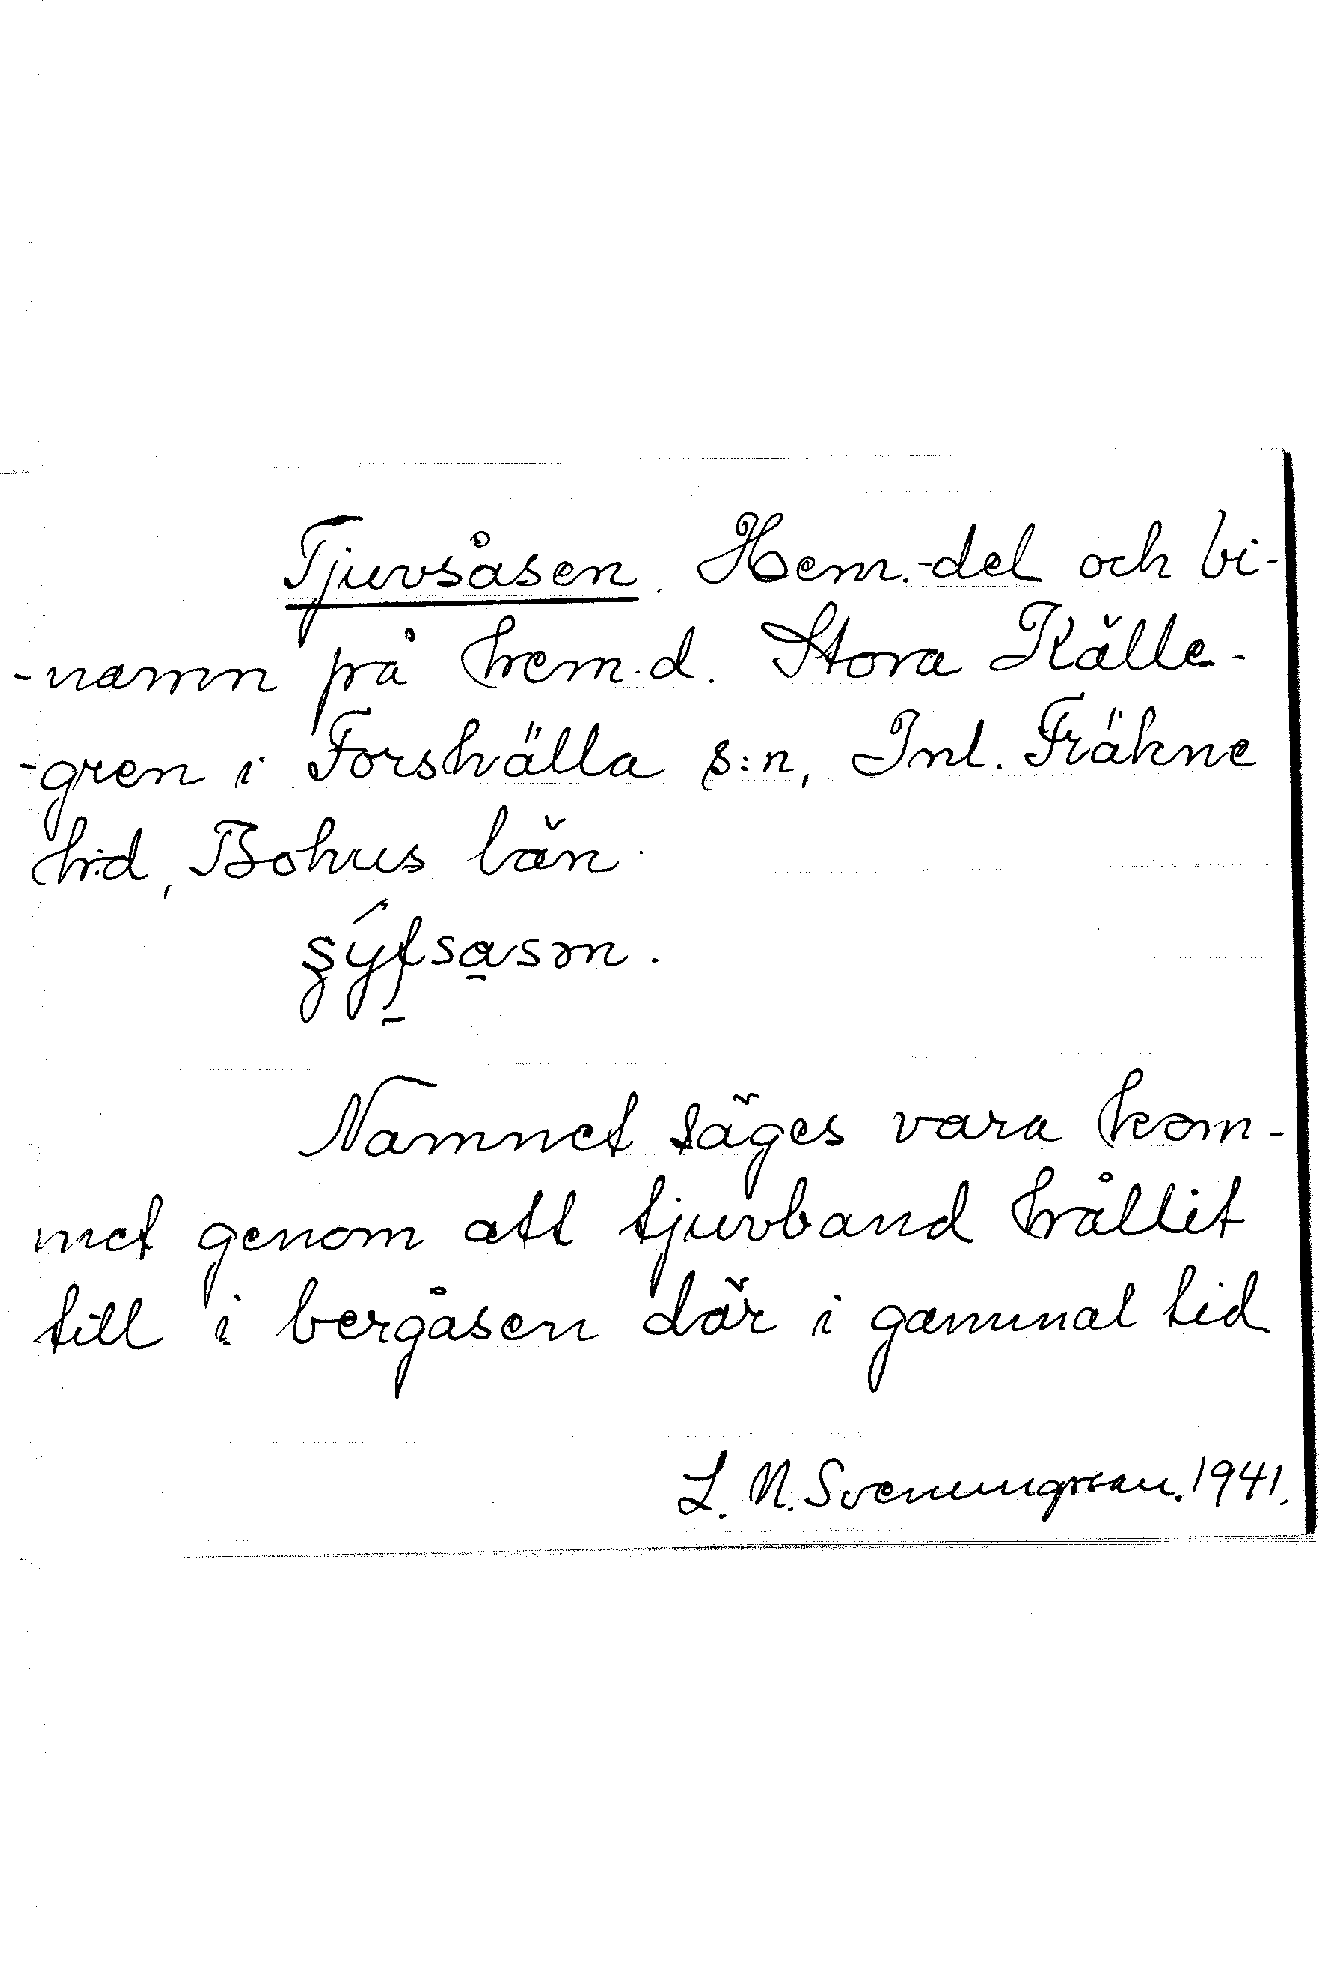 Tjuvsåsen. Hem.-del och bi-
-namn på hem.d. Stora Källe-
-gren i Forshälla s:n, Inl. Fräkne
hd, Bohus län.
Namnet säges vara kom-
met genom att tjuvband hållit
till i bergåsen där i gammal tid
L. N. Svenungsson. 1941.